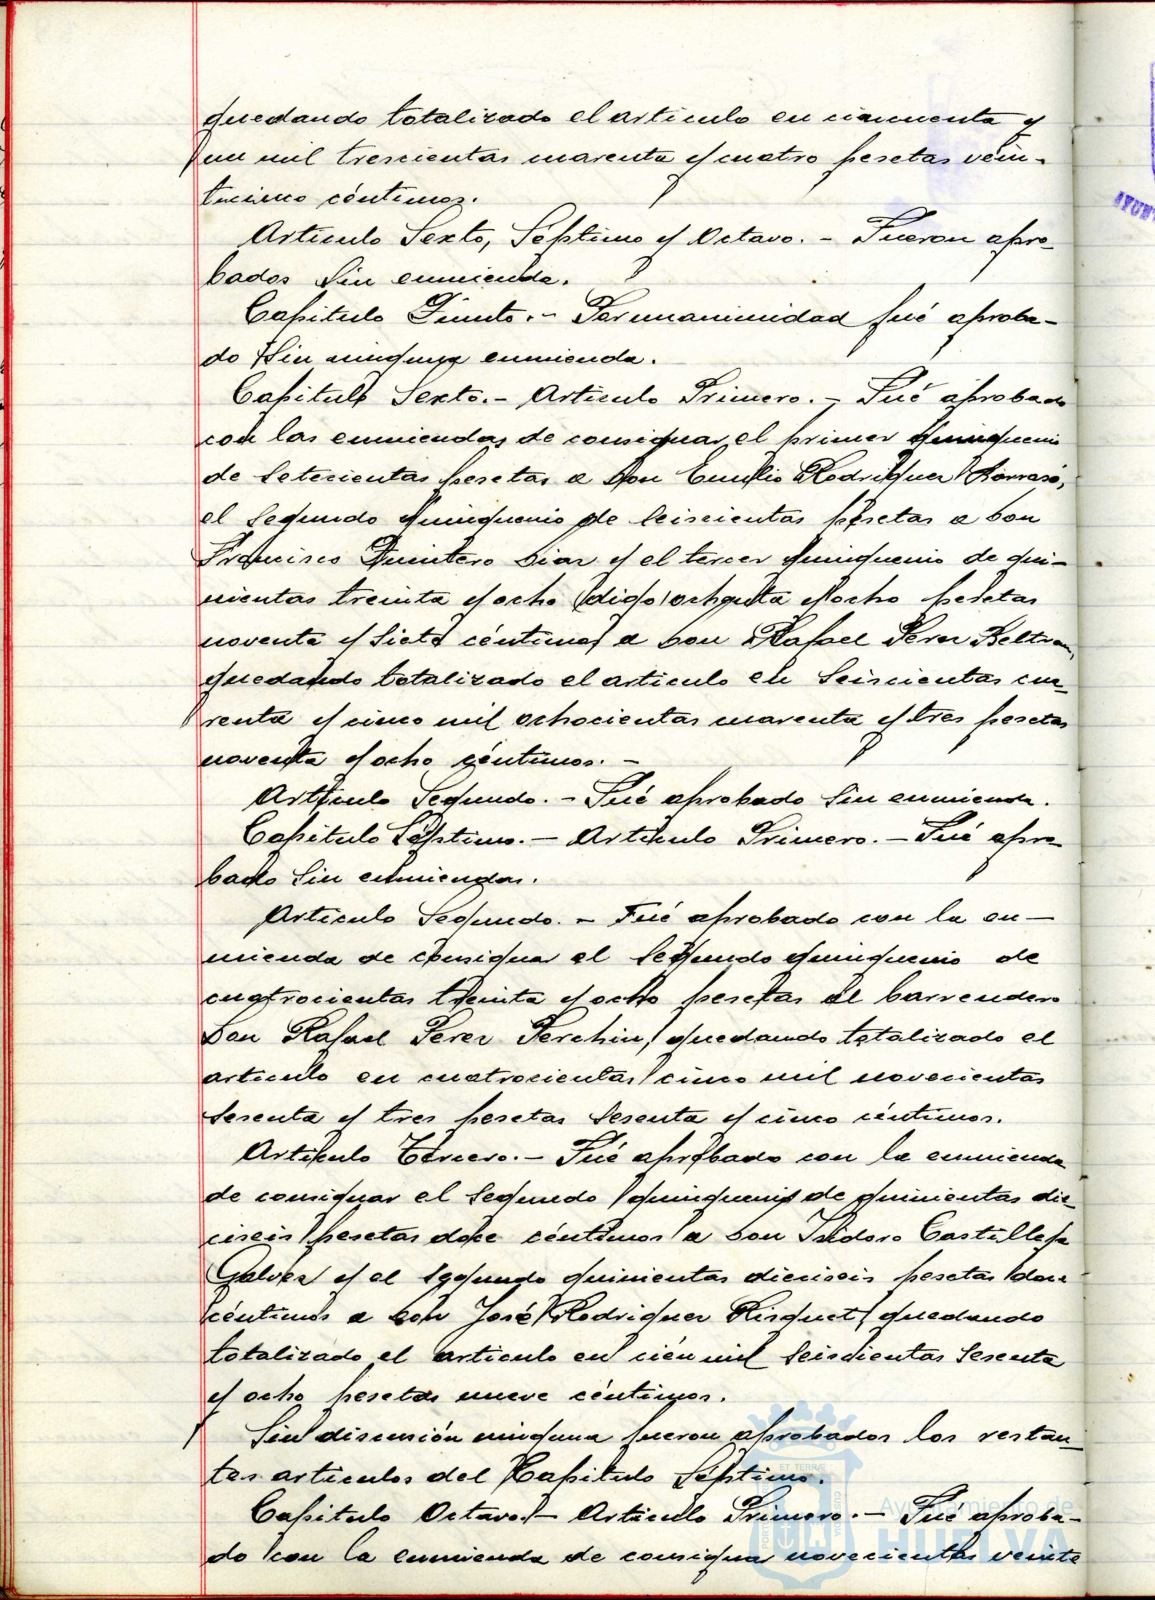 quedando totalizado el articulo en cincuenta y
un mil trescientas cuarenta y cuatro pesetas vein-
ticinco céntimos.
Articulo Sexto, Séptimo y Octavo. - Fueron apro-
bados sin enmienda.
Capitulo Quinto. - Por unanimidad fué aproba-
do sin ninguna enmienda.
Capitulo Sexto. - Articulo Primero. - Fué aprobado
con las enmiendas de consignar el primer quinquenio
de setecientas pesetas a Don Emilio Rodriguez
el segundo quinquenio de seiscientas pesetas a Don
Francisco Quintero Diaz y el tercer quinquenio de qui-
nientas treinta y ocho (digo) ochenta y ocho pesetas
noventa y siete céntimos a Don Rafael Perez Beltran,
quedando totalizado el articulo en seiscientas cua-
renta y cinco mil ochocientas cuarenta y tres pesetas
noventa y ocho céntimos. -
Articulo Segundo. - Fué aprobado sin enmienda.
Capitulo Séptimo. - Articulo Primero. - Fué apro-
bado sin enmiendas.
Articulo Segundo. - Fué aprobado con la en-
mienda de consignar el segundo quinquenio de
cuatrocientas treinta y ocho pesetas al barrendero
Don Rafael Perez Perchin, quedando totalizado el
articulo en cuatrocientas cinco mil novecientas
sesenta y tres pesetas sesenta y cinco céntimos.
Articulo Tercero. - Fué aprobado con la enmienda
de consignar el segundo quinquenio de quinientas die-
ciseis pesetas doce céntimos a Don Isidoro Castilleja
Galvez y el segundo quinientas dieciseis pesetas doce
céntimos a Don José Rodriguez Risquet, quedando
totalizado el articulo en cien mil seiscientas sesenta
y ocho pesetas nueve céntimos.
Sin discusión ninguna fueron aprobados los restan-
tes articulos del Capitulo Séptimo.
Capitulo Octavo. - Articulo Primero. - Fué aproba-
do con la enmienda de consignar novecientas veinte
Ayuntamiento de
HUELVA